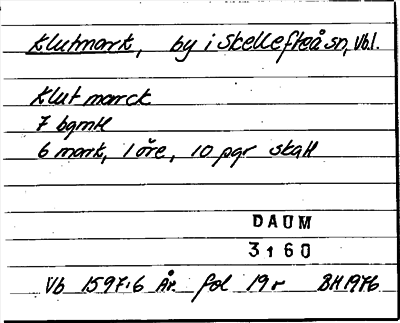 Klutmark, by i Skellefteå sn, Vb.l.
Klutmarck
7 bgmH
6 mark, 1 öre, 10 pgr skatt
DAUM
3160
Vb 1597:6 År. fol 19r BH1976